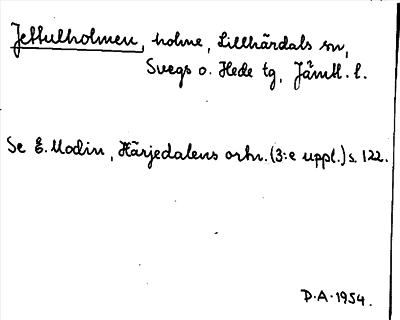 Jettulholmen, holme, Lillhärdals sn,
Svegs o. Hede tg, Jämtl. l.
Se E. Modin, Härjedalens ortn. (3:e uppl.) s. 122.
D.A. 1954.